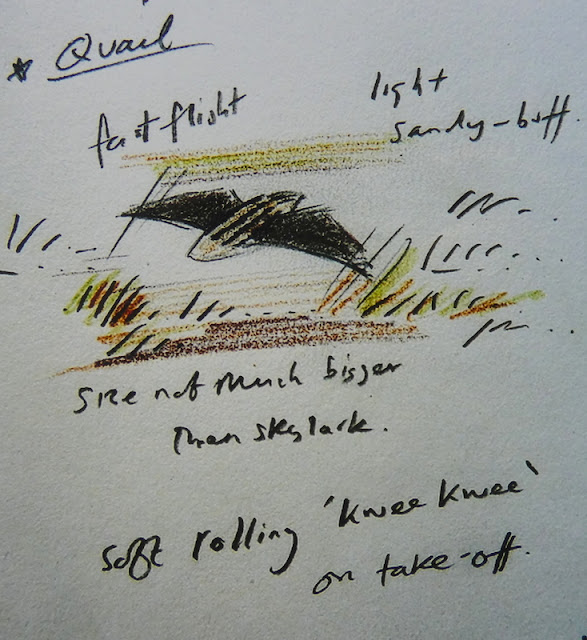 * Quail
fast flight
light
sandy-buff.
Size not much bigger
than skylark.
soft rolling 'kwee kwee'
on take-off.